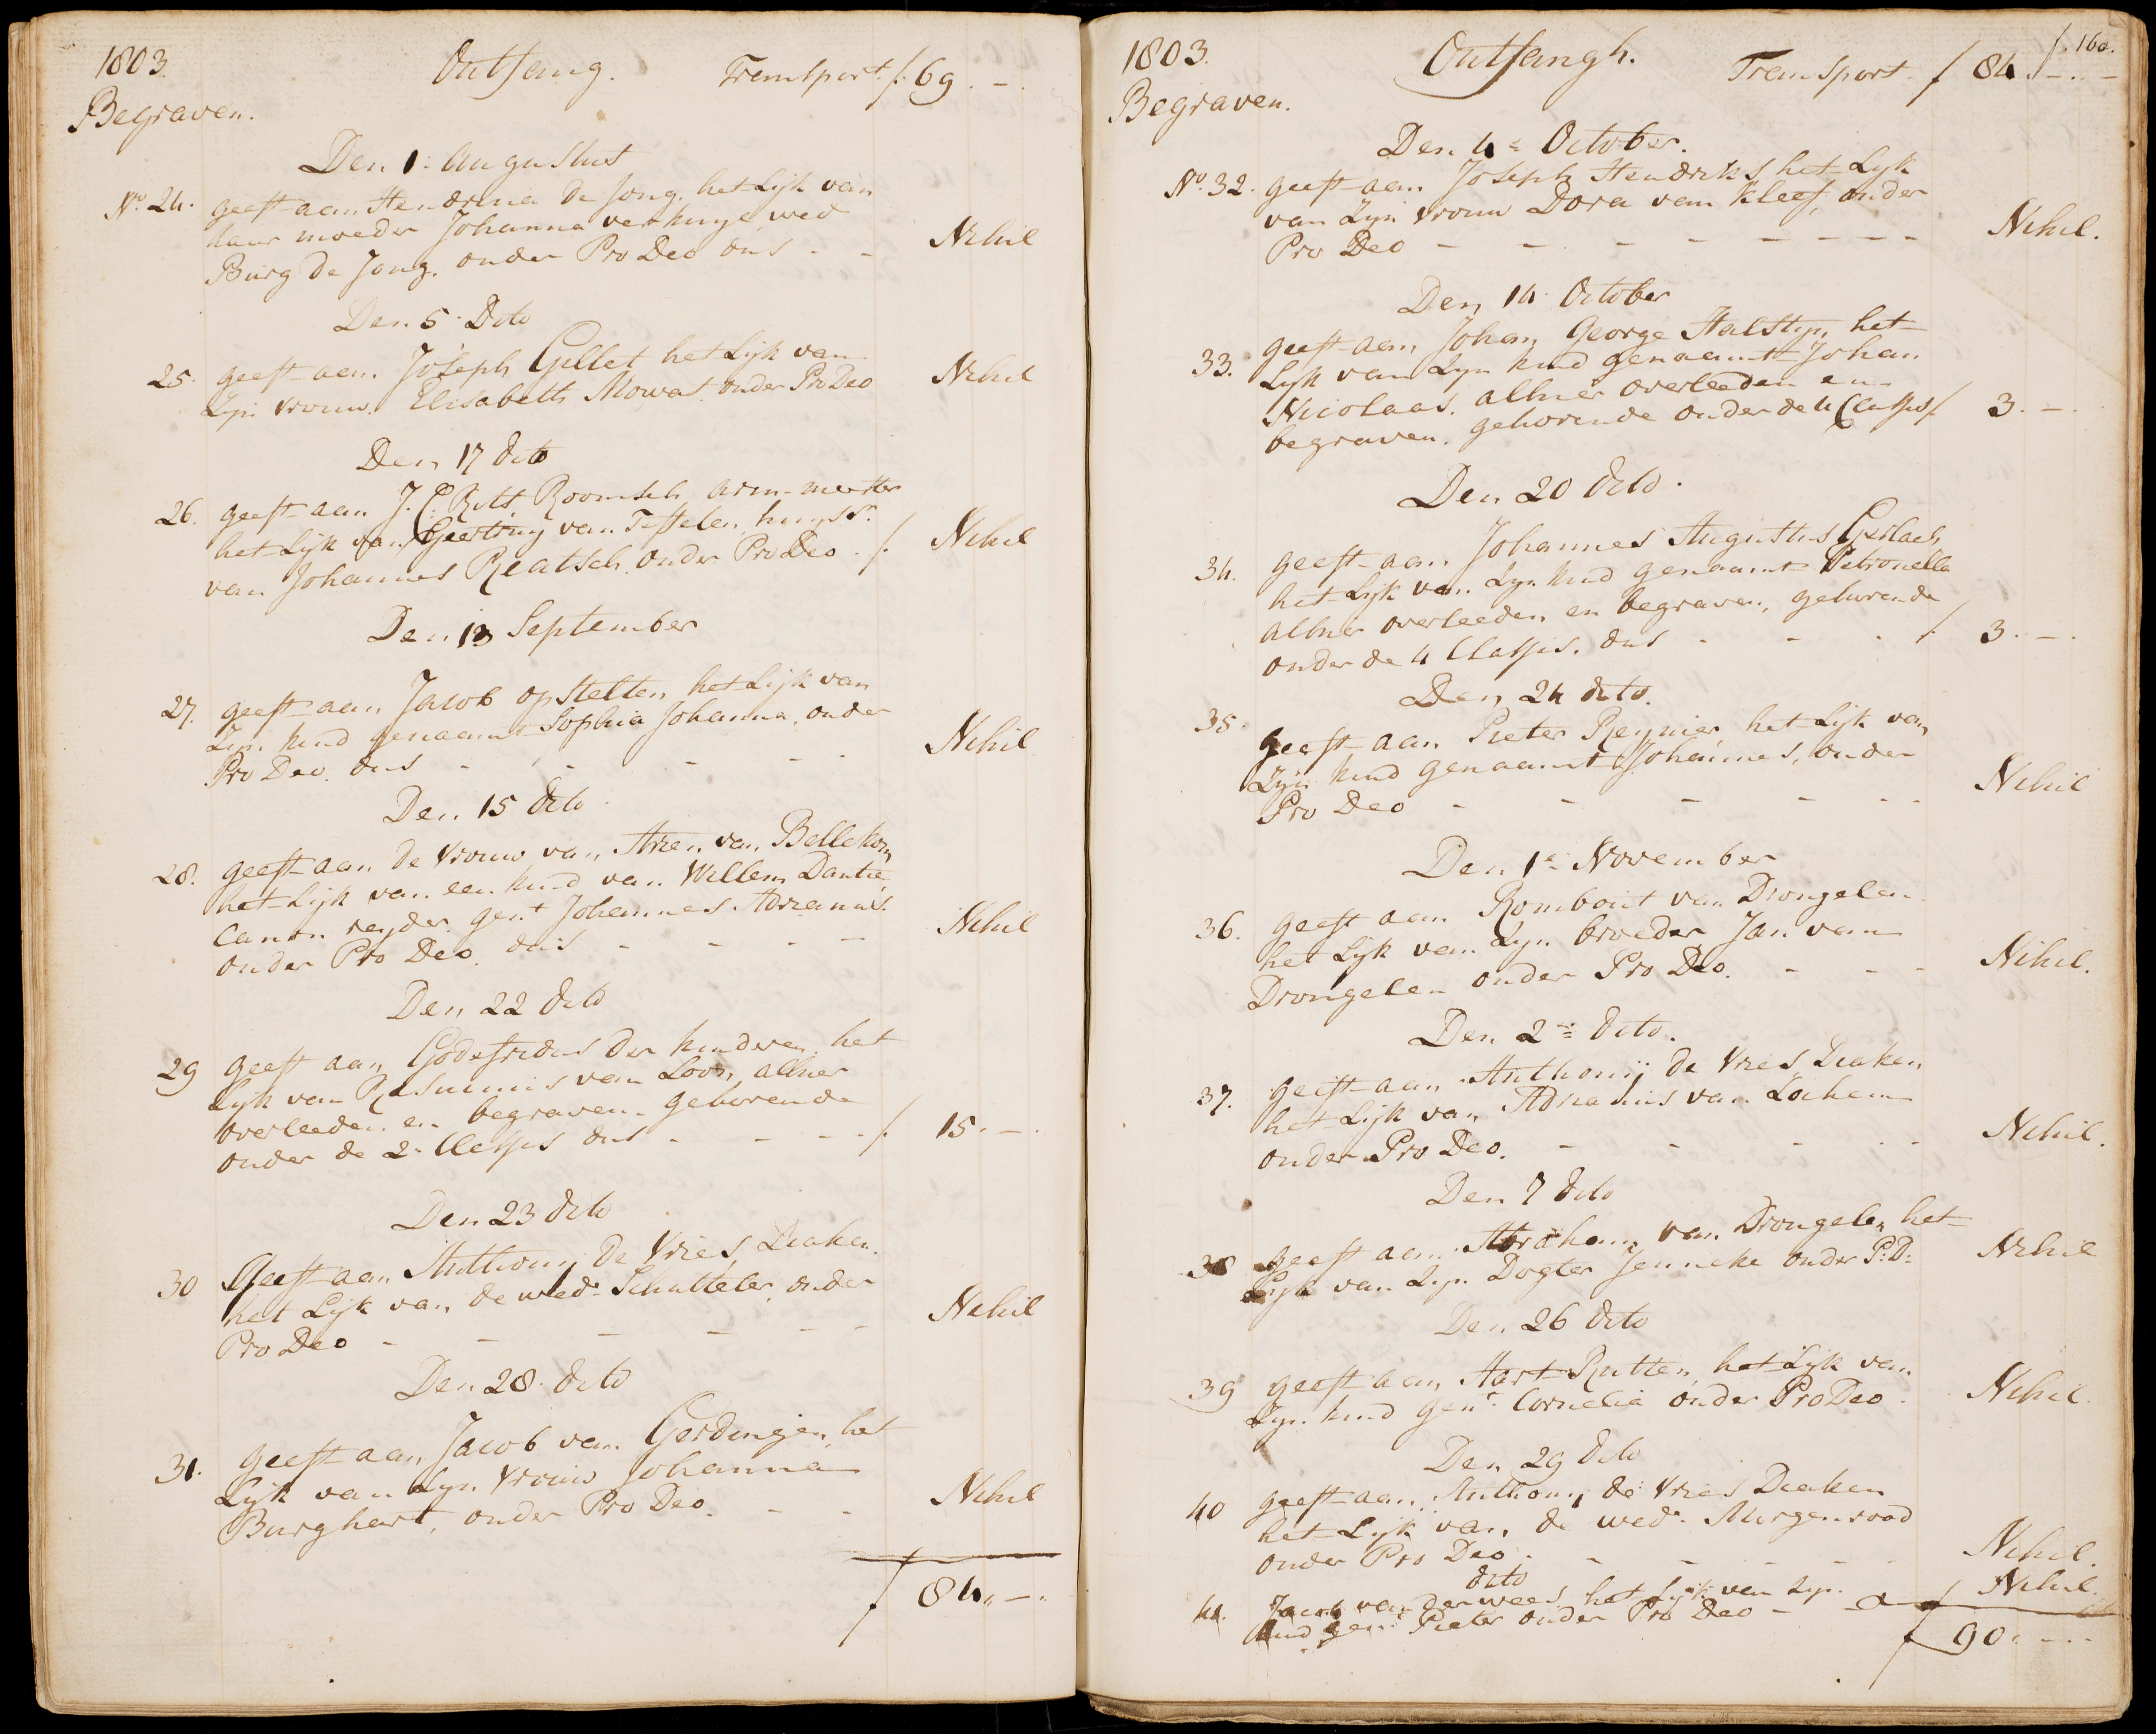 1803. Ontfang. Transport f. 69. -.
Begraven.
Den 1: augustus
No. 24. geeft aan Hendrina de Jong. het Lijk van
haar moeder Johanna wed
Burg de Jong. onder Pro Deo dus - - Nihil
Den 5: Dito
25. geeft aan Joseph Gillet het Lijk van
Zijn vrouw. Elisabeth Mowat. onder Pro Deo Nihil
Den 17 dito
26. geeft aan J. C. Rutt Roomsch arm-meester
het Lijk van Geertruy van Teffelen huysvr.
van Johannes Reatsch. onder Pro Deo. f. Nihil
Den 13 September
27. geeft aan Jacob opstelten het Lijk van
Zijn kind genaamt Sophia Johanna, onder
Pro Deo. dus - - - - - Nihil
Den 15 dito
28. geeft aan de vrouw van Arien van Bellekom
het Lijk van een kind van Willem Dantie,
Canon reyder gent Johannes Adrianus.
onder Pro Deo. dus - - - - Nihil
Den 22 dito
29 geeft aan Godefridus der kinderen het
Lijk van van Loon, alhier
overleeden en begraven gehorende
onder de 2e Classis dus - - - - f. 15. -.
Den 23 dito
30 Geeft aan Anthonij de Vries, Diaken.
het Lijk van de wede Schutteler, onder
Pro Deo - - - - - - Nihil
Den 28. dito
31. geeft aan Jacob van Gerdingen, het
Lijk van Zijn Vrouw Johanna
Burghart, onder Pro Deo. - - Nihil
f 84,, -.
f. 160.
1803. Ontfangh. Transport. f 84. -. -
Begraven.
Den 4e October.
No. 32. geeft aan Joseph Hendriks, het Lijk
van Zijn vrouw Dora van Kleef, onder
Pro Deo - - - - - - - - Nihil.
Den 14 October
33. geeft aan Johan George Halstijn, het
Lijk van Zijn kind genaamt Johan
Nicolaas. alhier overleeden en
begraven. gehorende onder de 4 Classis f 3. -
Den 20 dito.
34. geeft aan Johannes Augustus Gerlach
het Lijk van Zijn kind genaamt Petronella
alhier overleeden en begraven, gehorende
onder de 4 Classis. dus - - - f 3. -.
Den 24 dito.
35. geeft aan Pieter Reynier het Lijk van
Zijn kind genaamt Johannes, onder
Pro Deo - - - - - - Nihil
Den 1e November
36. geeft aan Rombout van Drongelen
het Lijk van Zijn broeder Jan van
Drongelen onder Pro Deo. - - - Nihil.
Den 2e dito.
37. geeft aan Anthonij de Vries Diaken
het Lijk van Adrianus van Lochem
onder Pro Deo. - - - - - Nihil.
Den 7 dito
38 geeft aan Abraham van Drongelen het
Lijk van Zijn Dogter Jenneke onder P:D: Nihil
Den 26 dito
39 geeft aan Aart Rutten, het Lijk van
Zijn kind gent. Cornelia onder Pro Deo. Nihil.
Den 29 dito
40 geeft aan Anthonij de Vries Diaken
het Lijk van de wede. Morgenrood
onder Pro Deo. - - - - Nihil.
dito
41. Jacob van der wees het Lijk van Zijn
kind gent. Pieter onder Pro Deo - - Nihil.
f 90. - -.